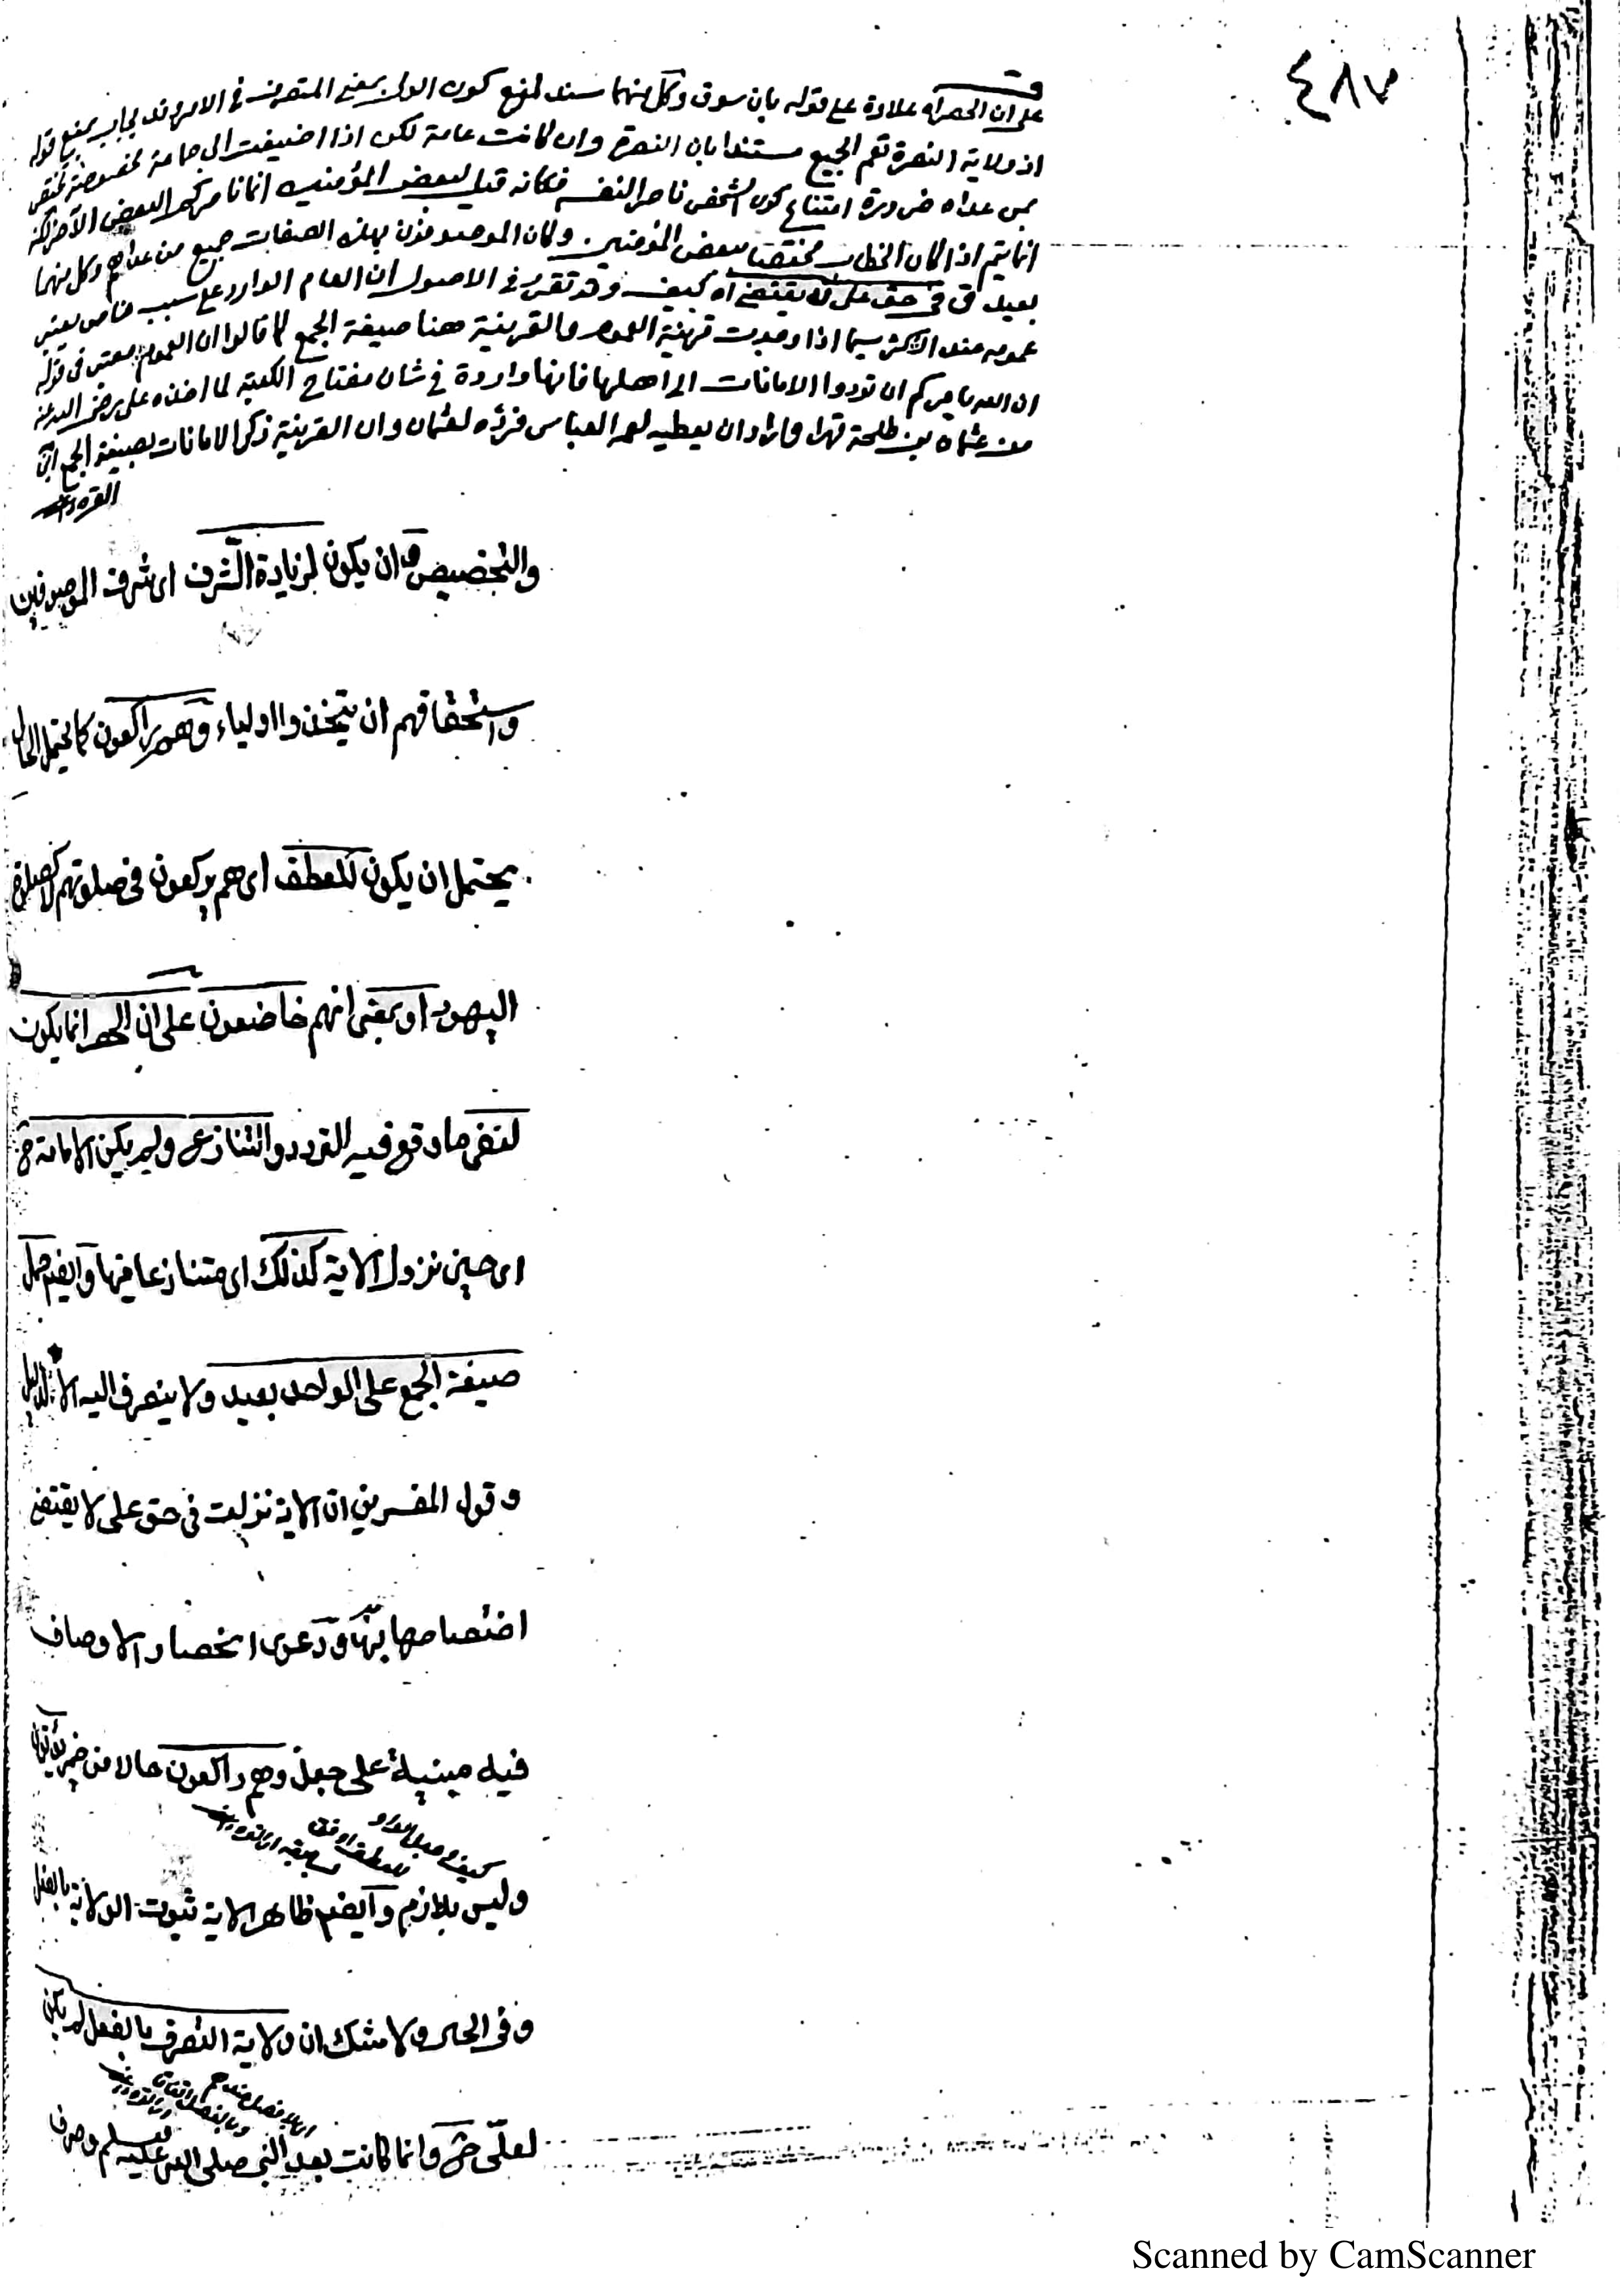 ٤٨٧
على ان الحصر اه علاوة على قوله بان سوق وكل منهما سند لمنع كون الولي بمعنى المتصرف في الامر وقد يجاب بمنع قوله
اذ ولاية النصرة تعم الجميع مستندا بان النصرة وان كانت عامة لكن اذا اضيفت الى جماعة مخصوصة تختص
بمن عداه ضرورة امتناع كون الشخص ناصر النفسه فكانه قيل لبعض المؤمنين انما ناصركم البعض الآخر لكنه
انما يتم اذا كان الخطاب مختصا ببعض المؤمنين وكان الموصوفون بهذه الصفات جميع من عداهم وكل منهما
بعيد ق في حق على لا يقتضي اه كيف وقد تقرر في الاصول ان العام الوارد على سبب خاص يعتبر
عمومه عند الاكثر سيما اذا وجدت قرينة العموم والقرينة هنا صيغة الجمع كما قالوا ان العموم معتبر في قوله
ان الله يامركم ان تودوا الامانات الى اهلها فانها واردة في شان مفتاح الكعبة لما اخذه على رضى الله عنه
من عثمان بن طلحة قهرا واراد ان يعطيه لعمه العباس فرده لعثمان وان القرينة ذكر الامانات بصيغة الجمع
والتخصيص ان يكون لزيادة الشرف اى شرف الموصوفين
واستحقاقهم ان يتخذوا اولياء وهم راكعون كما يحتمل الحال
يحتمل ان يكون للعطف اى هم يركعون في صلوتهم لا كصلوة
اليهود او بمعنى انهم خاضعون على ان الحصر انما يكون
لنفى ما وقع فيه التردد والتنازع ولم يكن الامامة ح
اى حين نزول الاية كذلك اى متنازعا فيها وايضا حمل
صيغة الجمع على الواحد بعيد ولا ينصرف اليه الا لدليل
وقول المفسرين ان الاية نزلت في حق على لا يقتضى
اختصاصها به ودعوى انحصار الاوصاف
فيه مبنية على جعل وهم راكعون حالا من ضمير يؤتون
وليس بلازم وايضا ظاهر الاية ثبوت الولاية بالفعل
وفى الحال ولا شك ان ولاية التصرف بالفعل لم يكن
لعلى ح وانما كانت بعد النبى صلى الله عليه وسلم وصرف
Scanned by CamScanner